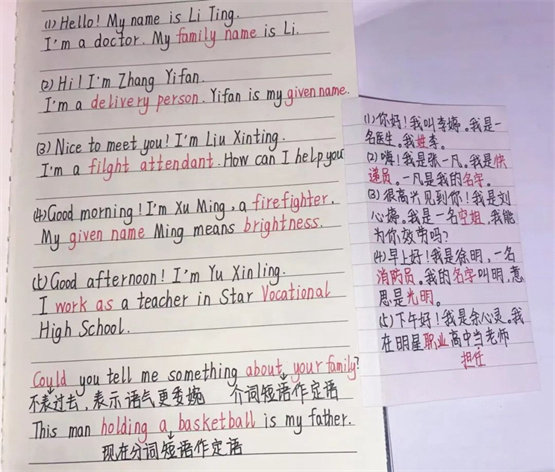 (1) Hello! My name is Li Ting.
I'm a doctor. My family name is Li.
(2) Hi! I'm Zhang Yifan.
I'm a delivery person. Yifan is my given name.
(3) Nice to meet you! I'm Liu Xinting.
I'm a filght attendant. How can I help you
(4) Good morning! I'm Xu Ming, a firefighter.
My given name Ming means brightness.
(5) Good afternoon! I'm Yu Xinling.
I work as a teacher in Star Vocational
High School.
Could you tell me something about your family?
不表过去，表示语气更委婉 介词短语作定语
This man holding a basketball is my father.
现在分词短语作定语
(1) 你好！我叫李婷。我是一
名医生。我姓李。
(2) 嗨！我是张一凡。我是快
递员。一凡是我的名字。
(3) 很高兴见到你！我是刘
心婷。我是一名空姐，我能
为你效劳吗？
(4) 早上好！我是徐明，一名
消防员。我的名字叫明，意
思是光明。
(5) 下午好！我是余心灵。我
在明星职业高中当老师
担任